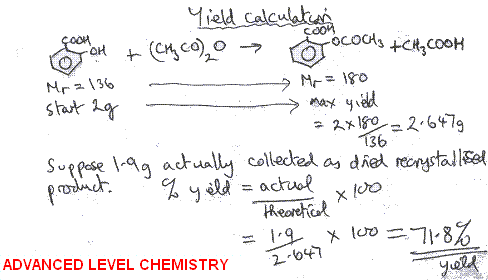 Yield Calculation
COOH OH + (CH₃CO)₂O → COOH OCOCH₃ + CH₃COOH
Mr = 136 → Mr = 180
start 2g → max yield
= 2 x 180/136 = 2.647g
Suppose 1.9g actually collected as dried recrystallised
product. % yield = actual/theoretical x 100
= 1.9/2.647 x 100 = 71.8%
yield
ADVANCED LEVEL CHEMISTRY